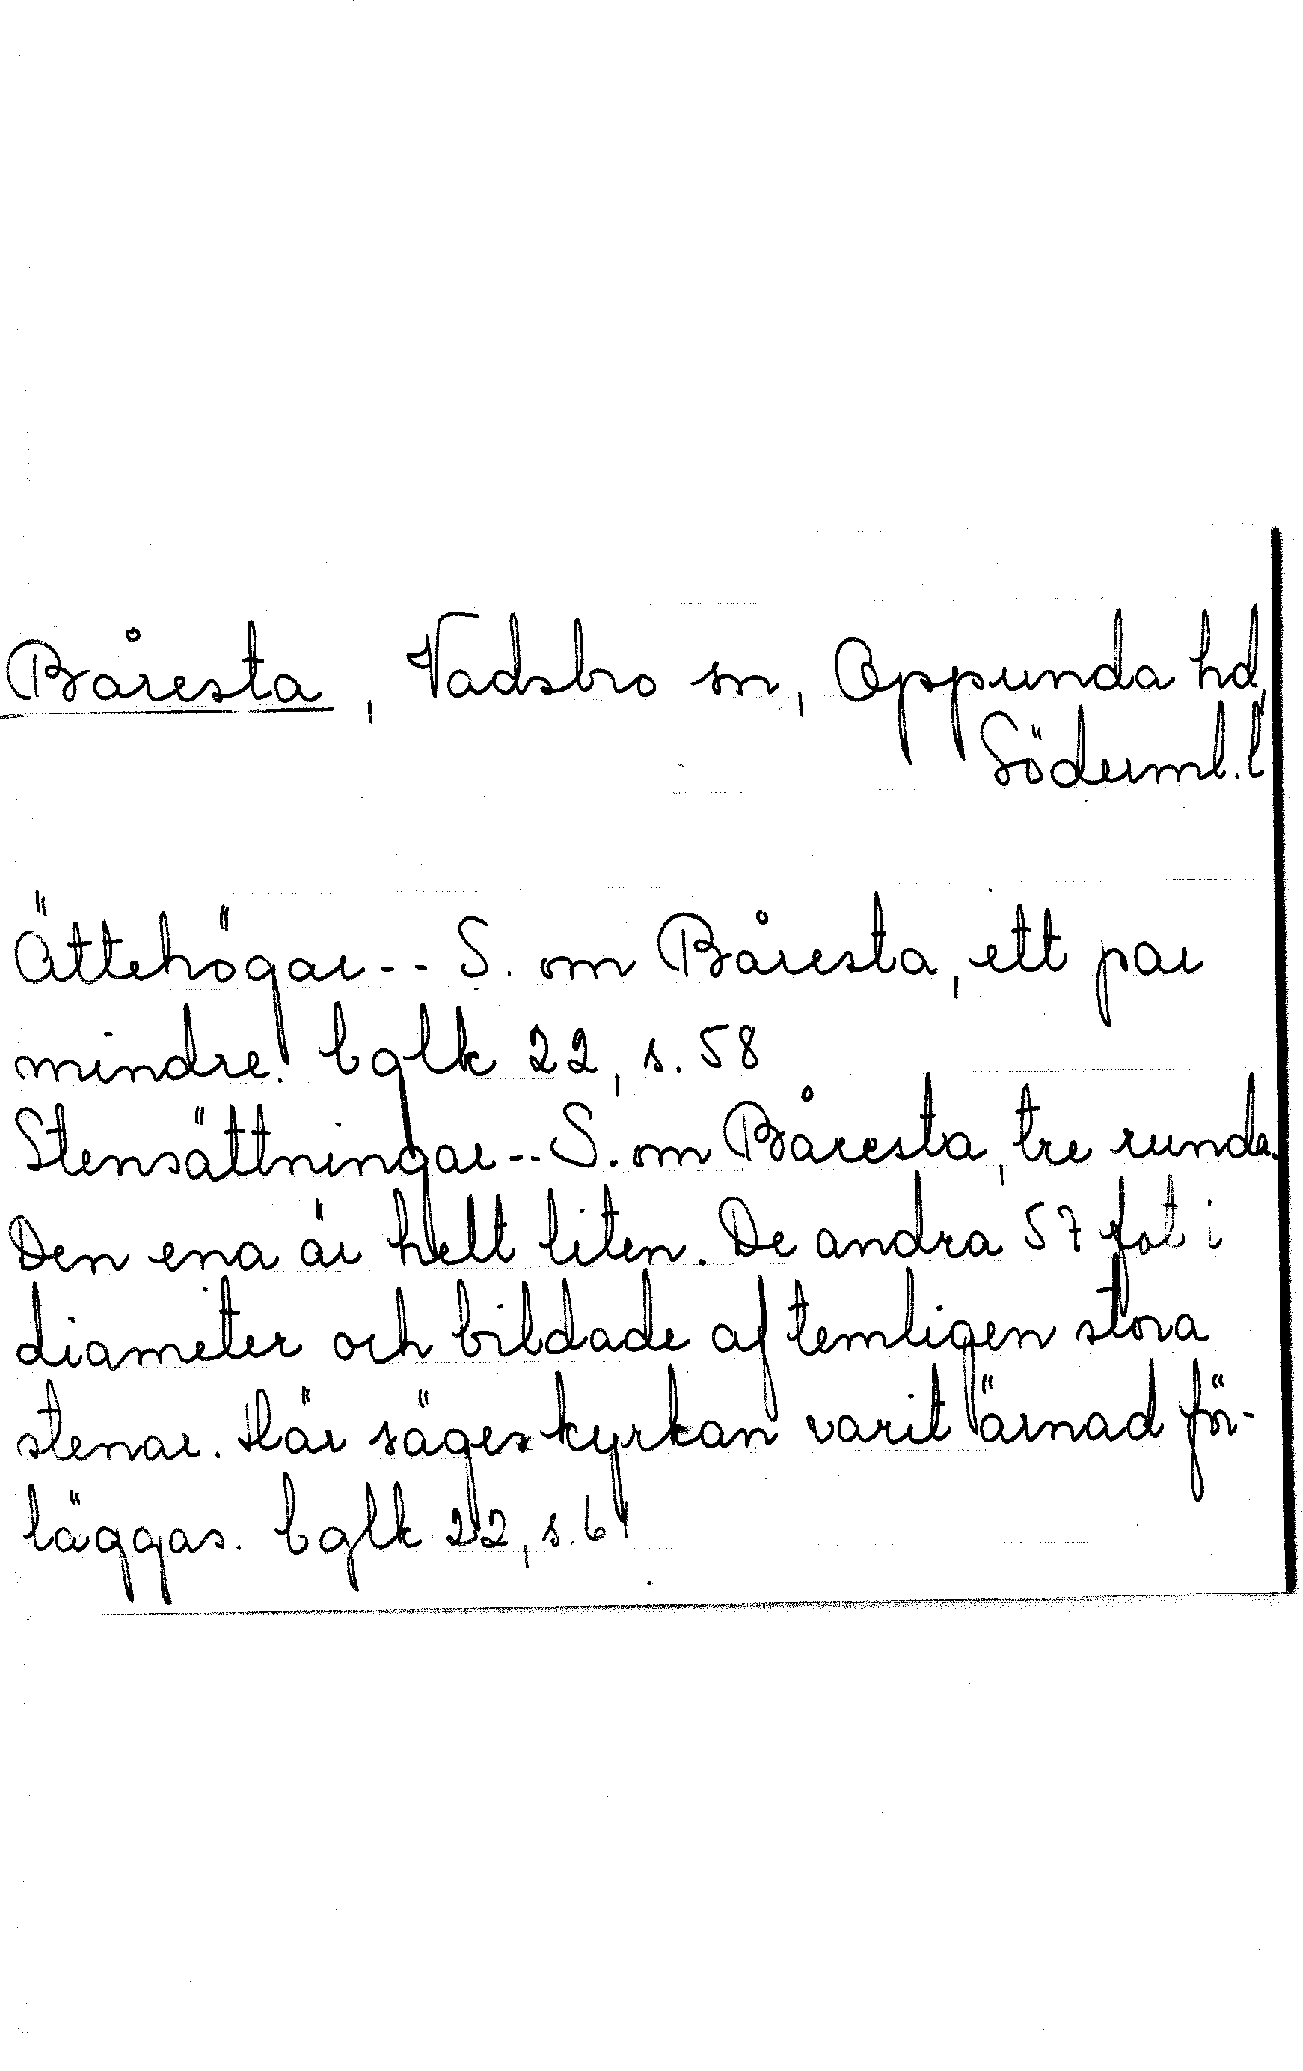 Båresta, Vadsbro sn, Oppunda hd,
Söderml. l
Ättehögar-- S. om Båresta, ett par
mindre. bglk 22, s. 58
Stensättningar-- S. om Båresta, tre runda.
Den ena är helt liten. De andra 57 fot i
diameter och bildade af temligen stora
stenar. Här säges kyrkan varit ärnad för-
läggas. bglk 22, s. 61